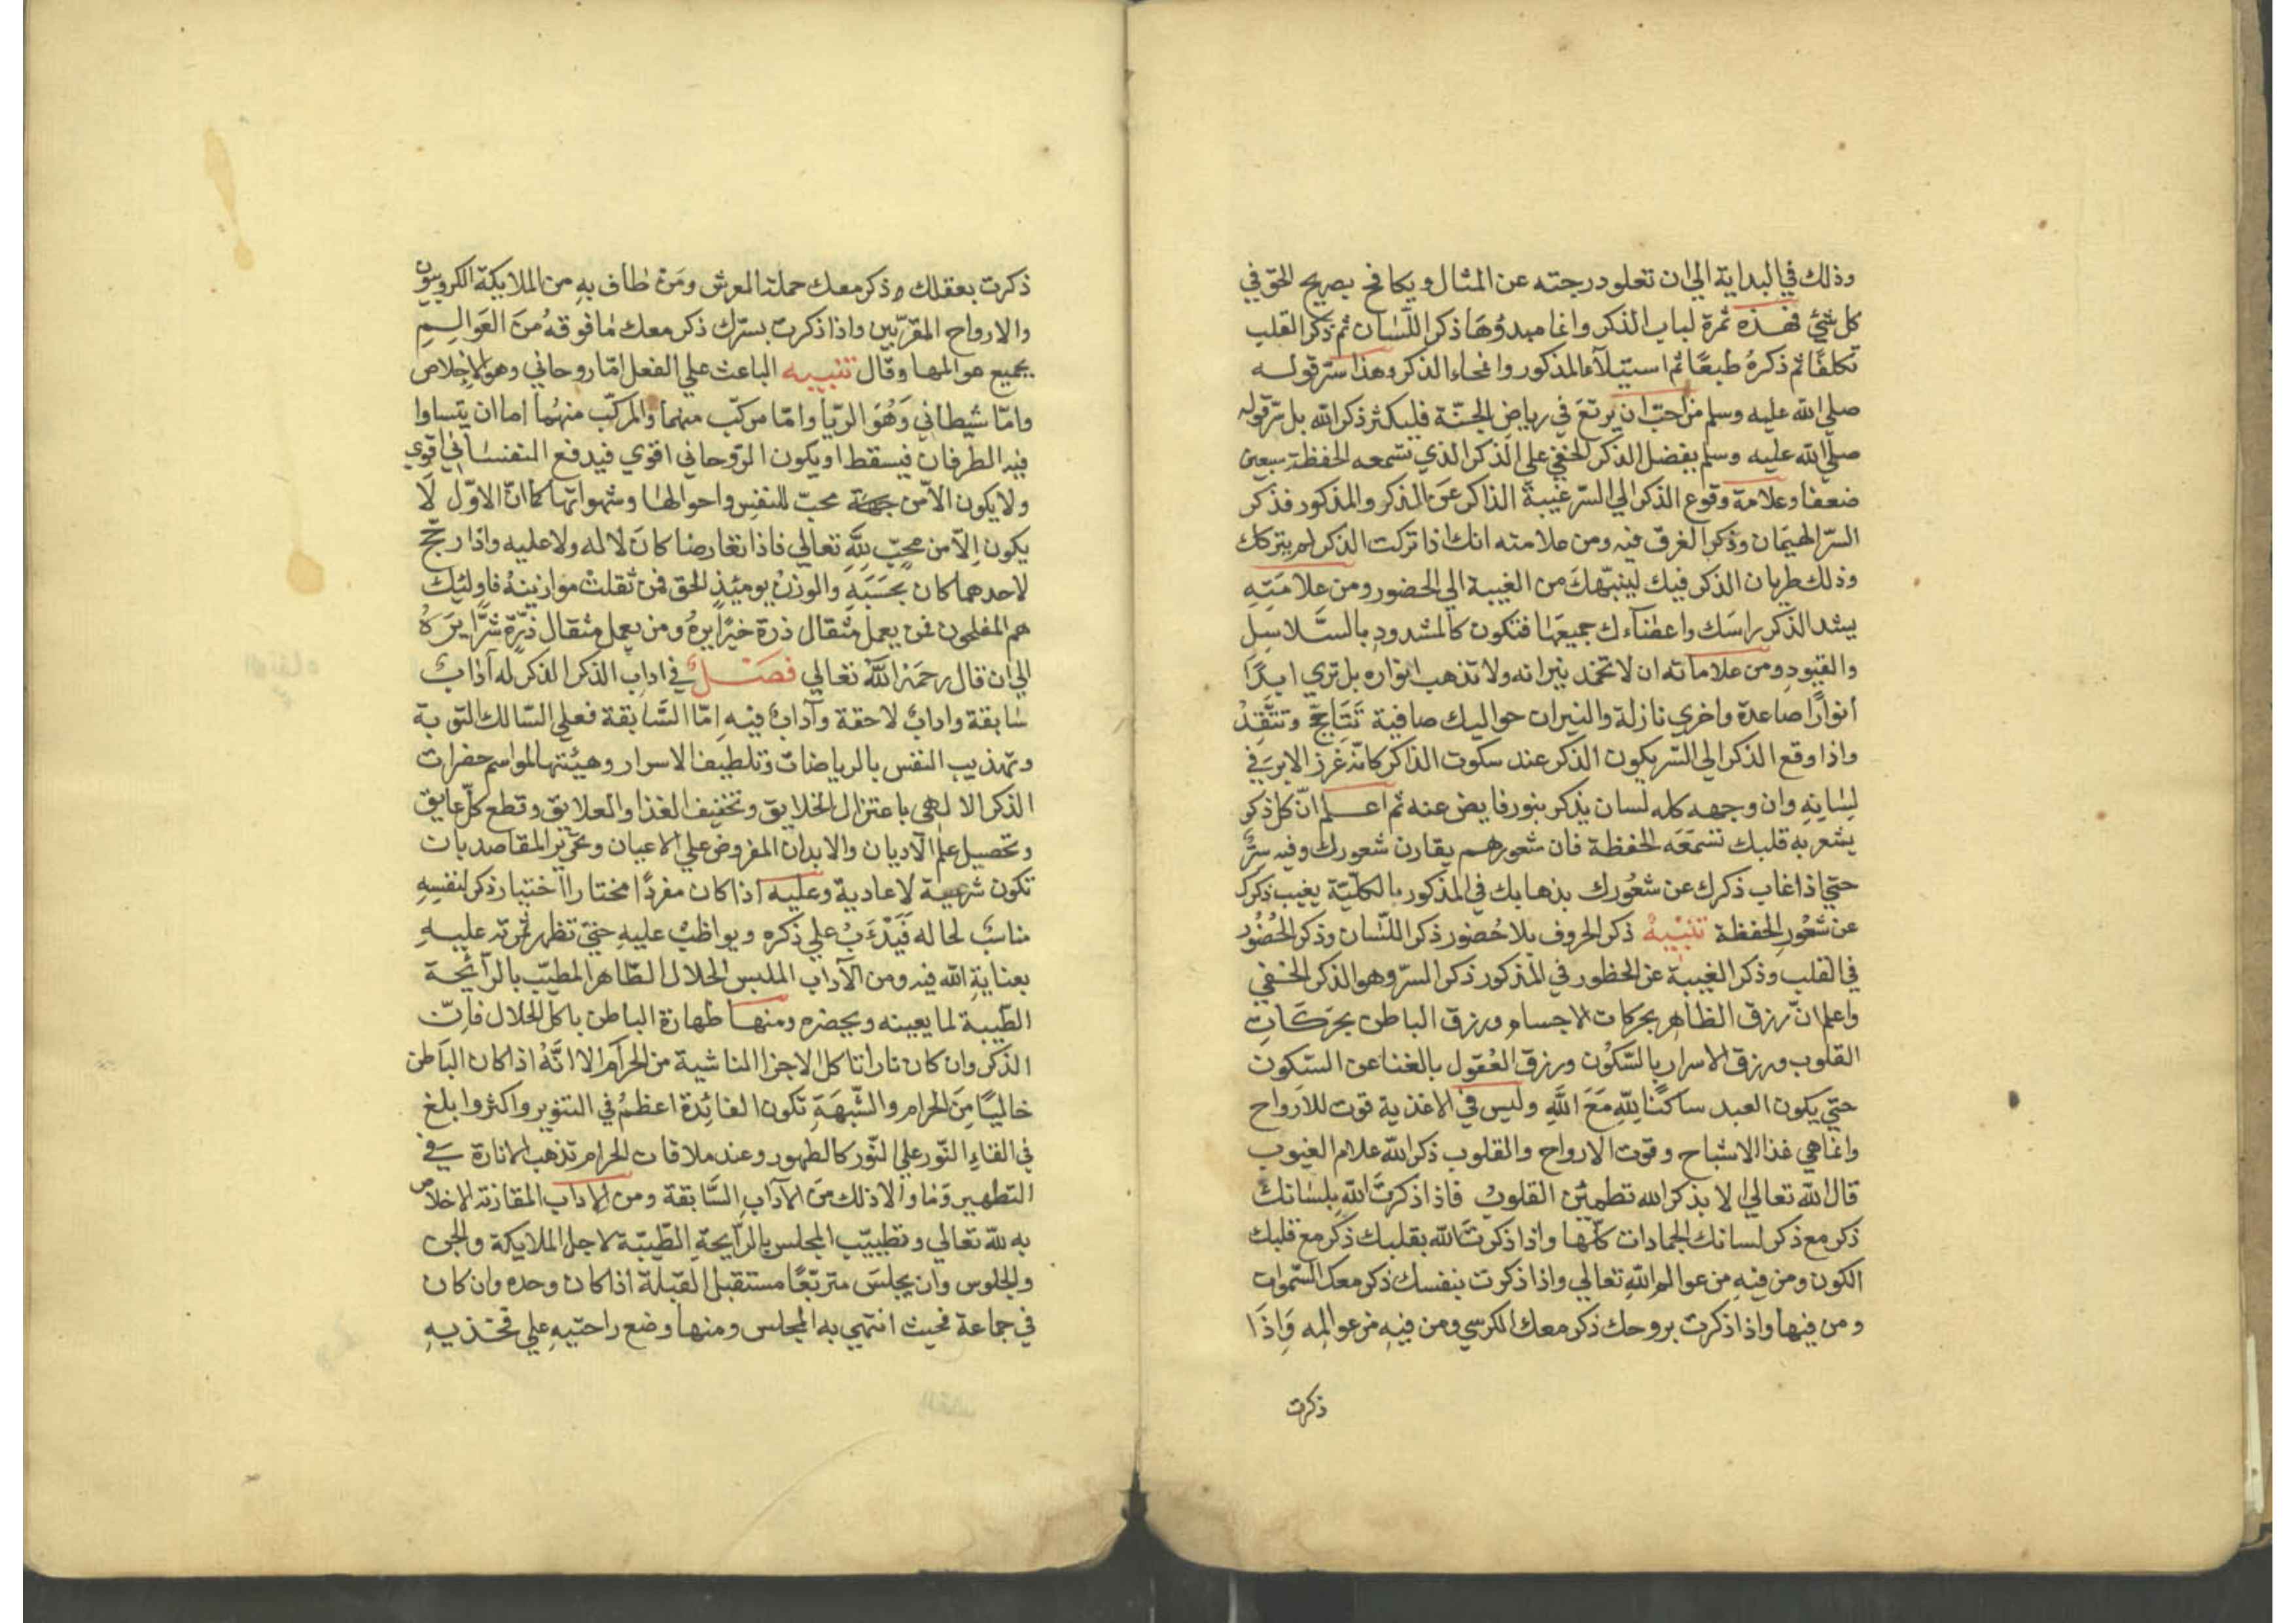 وذلك في البداية الي ان تعلو درجته عن المثال ويكافح بصريح الحق في
كل شيء فهذه ثمرة لباب الذكر وانما مبدؤها ذكر اللسان ثم ذكر القلب
تكلفا ثم ذكره طبعا ثم استيلاء المذكور وانمحاء الذكر وهذا سر قوله
صلي الله عليه وسلم من احب ان يرتع في رياض الجنة فليكثر ذكر الله بل سر قوله
صلي الله عليه وسلم بفضل الذكر الخفي علي الذكر الذي تسمعه الحفظة سبعين
ضعفا وعلامة وقوع الذكر الي السر غيبة الذاكر عن الذكر والمذكور فذكر
السر الهيمان وذكر الغرق فيه ومن علامته انك اذا تركت الذكر لم يتركك
وذلك طريان الذكر فيك لينبهك من الغيبة الي الحضور ومن علامته
يشد الذكر راسك واعضاءك جميعها فتكون كالمشدود بالسلاسل
والقيود ومن علاماته ان لا تخمد نيرانه ولا تذهب انواره بل تري ابدا
أنوارا صاعدة واخري نازلة والنيران حواليك صافية تتاجج وتتقد
واذا وقع الذكر الي السر يكون الذكر عند سكوت الذاكر كانه غرز الابر في
لسانه وان وجهه كله لسان يذكر بنور فايض عنه ثم اعلم ان كل ذكر
يشعر به قلبك تسمعه الحفظة فان شعورهم يقارن شعورك وفيه سر
حتي اذا غاب ذكرك عن شعورك بذهابك في المذكور بالكلية يغيب ذكرك
عن شعور الحفظة تنبيه ذكر الحروف بلا حضور ذكر اللسان وذكر الحضور
في القلب وذكر الغيبة عن الحظور في المذكور ذكر السر وهو الذكر الخفي
واعلم ان رزق الظاهر بحركات الاجسام ورزق الباطن بحركات
القلوب ورزق الاسرار بالسكون ورزق العقول بالغنا عن السكون
حتي يكون العبد ساكنا لله مع الله وليس في الاغذية قوت للارواح
وانما هي غذا الاشباح وقوت الارواح والقلوب ذكر الله علام الغيوب
قال الله تعالي الا بذكر الله تطمئن القلوب فاذا ذكرت الله بلسانك
ذكر مع ذكر لسانك الجمادات كلها واذا ذكرت الله بقلبك ذكر مع قلبك
الكون ومن فيه من عوالم الله تعالي واذا ذكرت بنفسك ذكر معك السموات
ومن فيها واذا ذكرت بروحك ذكر معك الكرسي ومن فيه من عوالمه واذا
ذكرت
ذكرت بعقلك ذكر معك حملة العرش ومن طاف به من الملايكة الكروبيون
والارواح المقربين واذا ذكرت بسرك ذكر معك ما فوقه من العوالم
بجميع عوالمها وقال تنبيه الباعث علي الفعل اما روحاني وهو الاخلاص
واما شيطاني وهو الريا واما مركب منهما والمركب منهما اما ان يتساوا
فيه الطرفان فيسقط او يكون الروحاني اقوي فيدفع النفساني اقوي
ولا يكون الا من جهة محب للنفس واحوالها وشهواتها كما ان الاول لا
يكون الا من محب لله تعالي فاذا تعارضا كان لا له ولا عليه واذا رجح
لاحدهما كان بحسبه والوزن يومئذ الحق فمن ثقلت موازينه فاولئك
هم المفلحون فمن يعمل مثقال ذرة خيرا يره ومن يعمل مثقال ذرة شرا يره
الي ان قال رحمه الله تعالي فصل في اداب الذكر الذكر له آداب
سابقة واداب لاحقة وآداب فيه اما السابقة فعلي السالك التوبة
وتهذيب النفس بالرياضات وتلطيف الاسرار وهيئتها لمواسم حضرات
الذكر الالهي باعتزال الخلايق وتخفيف الغذا والعلايق وقطع كل عايق
وتحصيل علم الاديان والابدان المفروض علي الاعيان وتحرير المقاصد بان
تكون شرعية لا عادية وعليه اذا كان مفردا مختارا اختيار ذكر لنفسه
مناسب لحاله فيدءب علي ذكره ويواظب عليه حتي تظهر ثمرته عليه
بعناية الله فيه ومن الآداب الملبس الحلال الطاهر المطيب بالرائحة
الطيبة لما يعينه ويحضره ومنها طهارة الباطن باكل الحلال فان
الذكر وان كان نارا تاكل الاجزا الناشية من الحرام الا انه اذا كان الباطن
خاليا من الحرام والشبهة تكون الفائدة اعظم في التنوير واكثر وابلغ
في القاء النور علي النور كالطهور وعند ملاقات الحرام تذهب الانارة في
التطهير وما والا ذلك من الآداب السابقة ومن الاداب المقارنة الاخلاص
به لله تعالي وتطييب المجلس بالرايحة الطيبة لاجل الملايكة والجن
والجلوس وان يجلس متربعا مستقبل القبلة اذا كان وحده وان كان
في جماعة فحيث انتهي به المجلس ومنها وضع راحتيه علي فخذيه